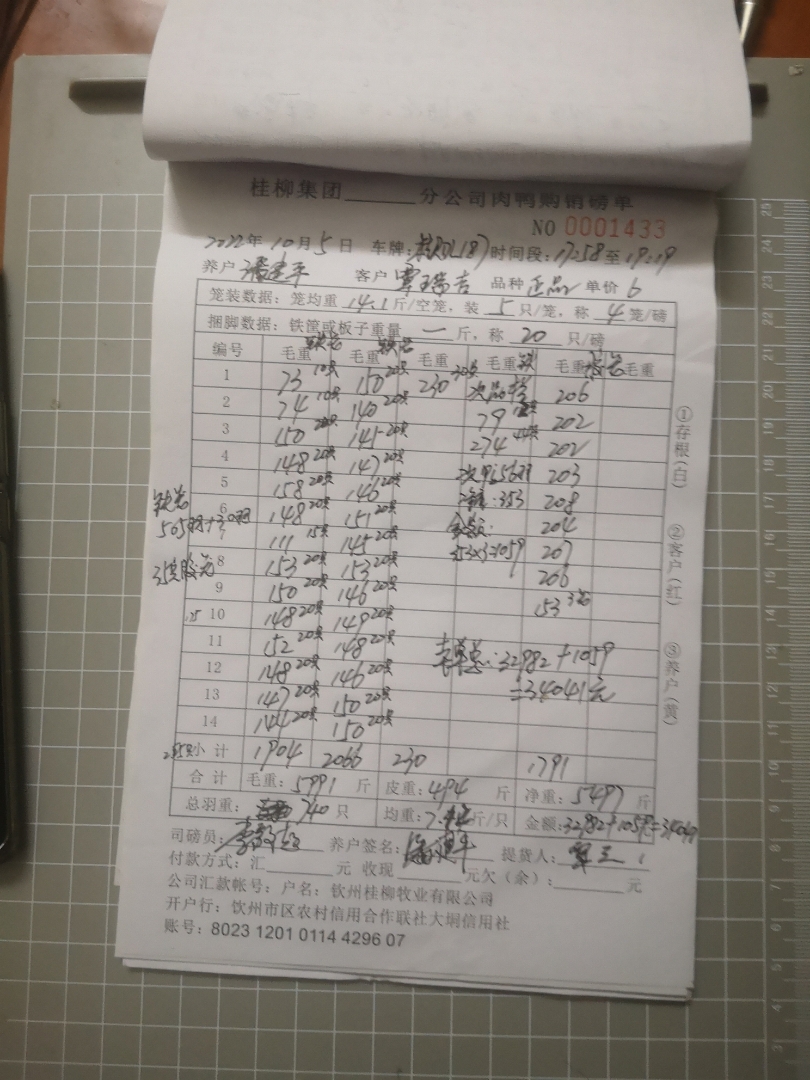 桂柳集团______分公司肉鸭购销磅单
NO 0001433
2022年10月5日 车牌: 时间段:17:58至19:19
养户 潘建平 客户 覃瑞吉 品种 正品 单价 6
笼装数据:笼均重 14.1 斤/空笼,装 5 只/笼,称 4 笼/磅
捆脚数据:铁筐或板子重量 一 斤,称 20 只/磅
编号 毛重 毛重 毛重 毛重 毛重 毛重
1 73 10只 150 20只 230 30只 206
2 74 10只 140 20只 79 202
3 150 20只 145 20只 274 202
4 148 20只 147 20只 203
5 158 20只 146 20只 净重:353 208
6 148 20只 151 20只 金额: 204
7 111 15只 145 20只 353×3=1059 207
8 153 20只 153 20只 206
9 150 20只 146 20只 153 3笼
10 148 20只 149 20只
11 152 20只 148 20只 总:32982+1059
12 148 20只 146 20只 =34041元
13 147 20只 150 20只
14 144 20只 150 20只
小计 1904 2066 230 1791
合计 毛重:5991 斤 皮重:494 斤 净重:5497 斤
总羽重: 740 只 均重: 斤/只 金额:32982+1059=34041
司磅员: 养户签名:潘建平 提货人:
付款方式:汇______元 收现______元欠(余):______元
公司汇款帐号:户名:钦州桂柳牧业有限公司
开户行:钦州市区农村信用合作联社大垌信用社
账号:8023 1201 0114 4296 07
①存根(白)
②客户(红)
③养户(黄)